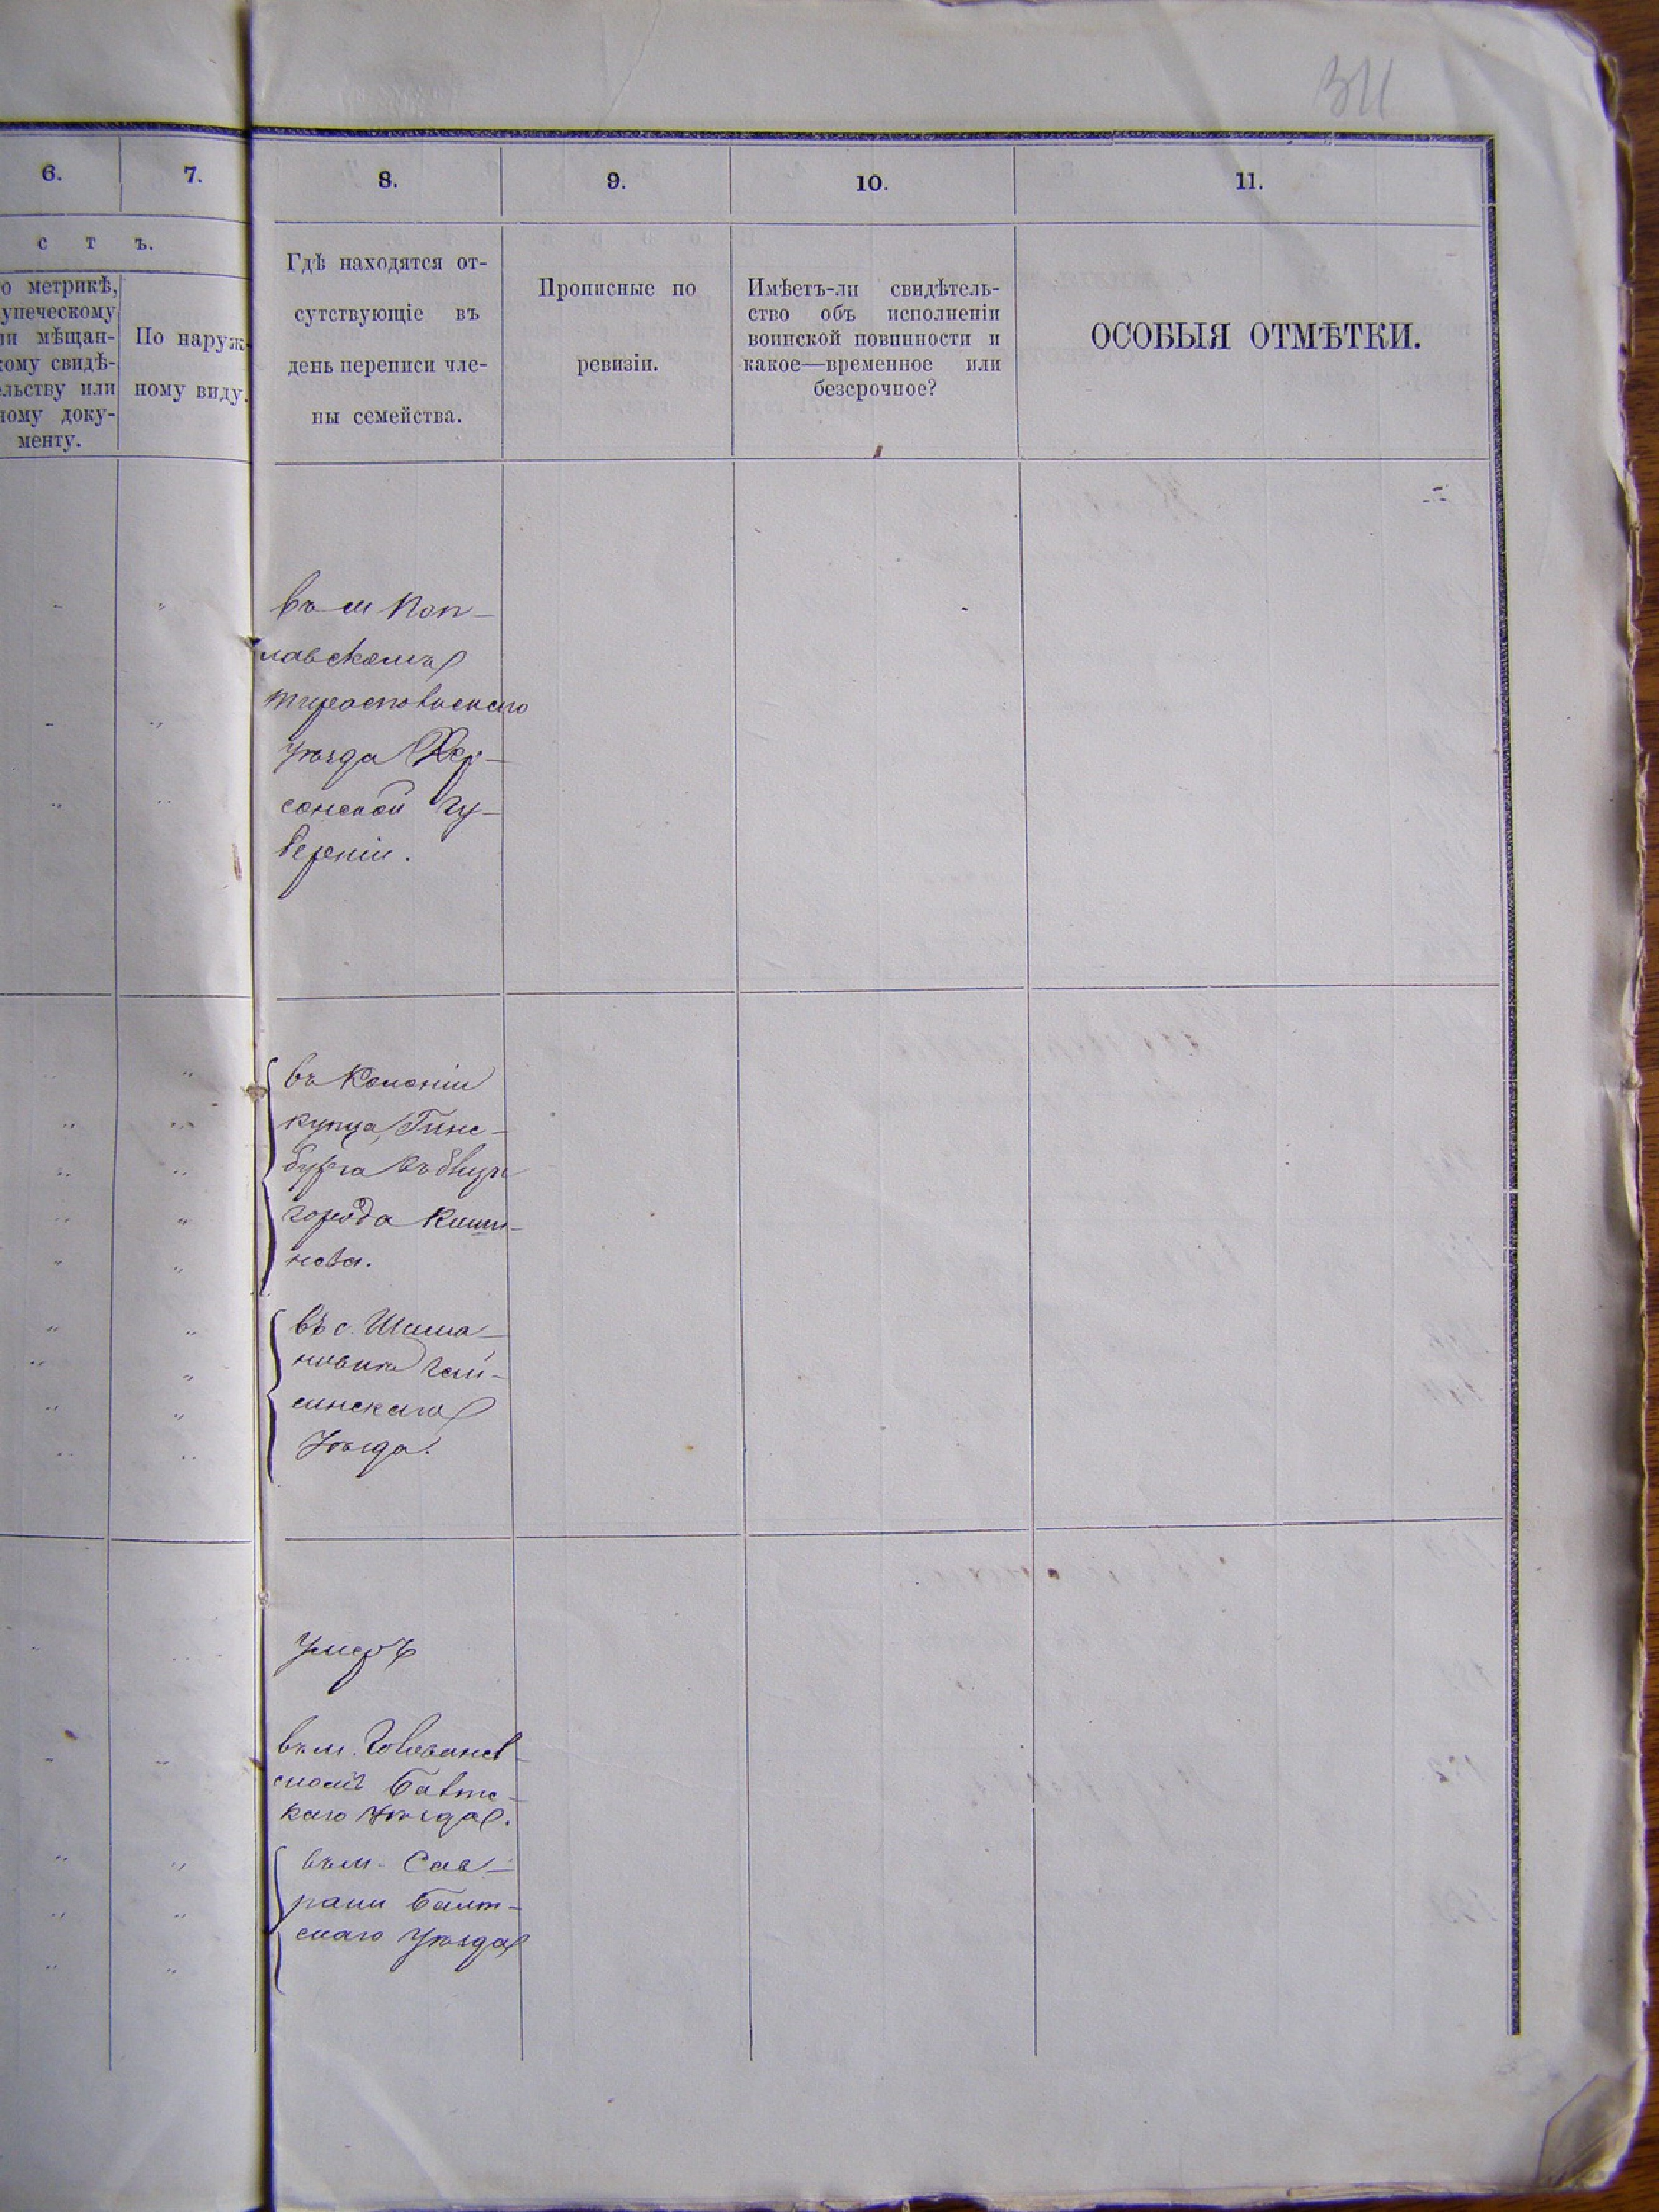 6.
7.
8.
9.
10.
11.
с т ъ.
о метрикѣ,
упеческому
ли мѣщан-
кому свидѣ-
ельству или
ному доку-
менту.
По наруж-
ному виду.
Гдѣ находятся от-
сутствующіе въ
день переписи чле-
ны семейства.
Прописные по
ревизіи.
Имѣетъ-ли свидѣтель-
ство объ исполненіи
воинской повинности и
какое—временное или
безсрочное?
ОСОБЫЯ ОТМѢТКИ.
въ м Поп-
лавскомъ
тираспольскаго
уѣзда Хер-
сонской гу-
берніи.
въ Колоніи
купца Гинс-
бурга въ близи
города Киши-
нева.
въ с. Шима-
новка Гай-
синскаго
Уѣзда.
умеръ
въ м. Голованев-
скомъ Балтс-
каго Уѣзда.
въ м. Сав-
рани Балт-
скаго Уѣзда